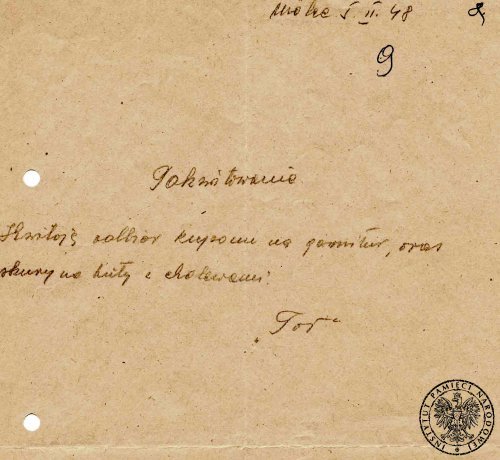 5. II. 48
9
Pokwitowanie
Kwituję odbior kuponu na garnitur, oraz
skury na buty z cholewami.
„Tor“
INSTYTUT PAMIĘCI NARODOWEJ